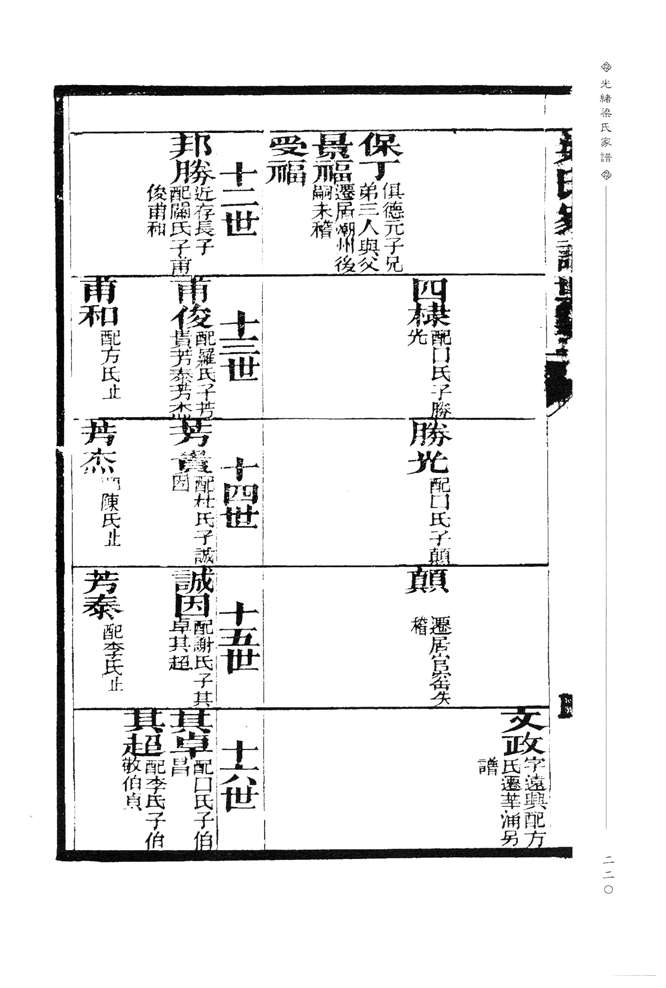 光緒梁氏家譜
二二〇
保丁
俱德元子兄
弟三人與父
景福
遷居潮州後
嗣未稽
受福
四棣
配口氏子勝
光
勝光
配口氏子顛
顛
遷居官窑失
稽
文政
字遠興配方
氏遷華涌另
譜
十二世
十三世
十四世
十五世
十六世
邦勝
近存長子
配關氏子甫
俊甫和
甫俊
配羅氏子芳
貴芳泰芳杰
甫和
配方氏止
芳貴
配杜氏子誠
因
芳杰
陳氏止
誠因
配謝氏子其
卓其超
芳泰
配李氏止
其卓
配口氏子伯
昌
其超
配李氏子伯
敬伯貞